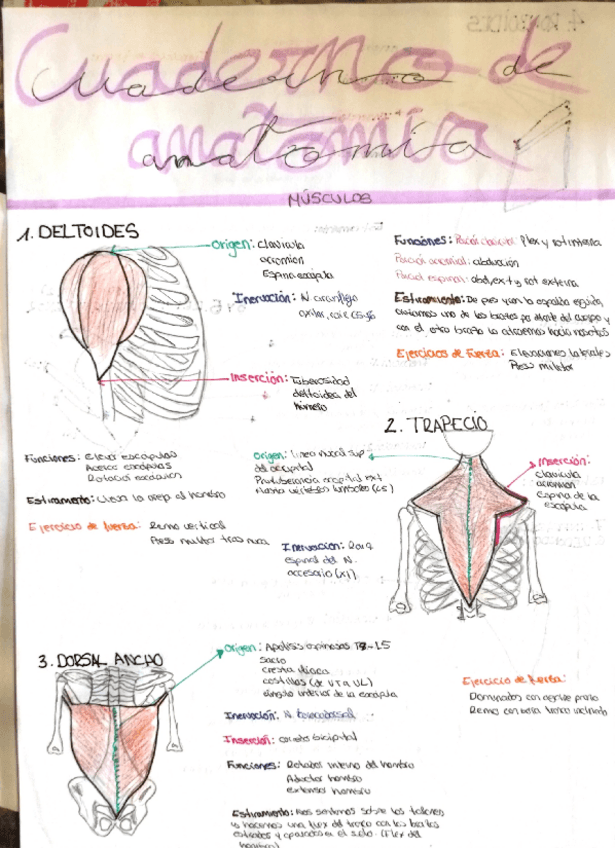 Cuaderno de
anatomía
MÚSCULOS
1. DELTOIDES
Origen: Clavícula
acromion
Espina escápula
Inervación: N circunflejo
axilar, raíz C5-
Inserción: Tuberosidad
deltoidea del
húmero
Funciónes: Flex y rot interna
abducción
abd, ext y rot externa
Estiramiento: De pies y con la espalda erguida,
uno de los brazos por delante del cuerpo y
con el otro brazo lo hacia nosotros
Ejercicios de fuerza: Elevaciones laterales
Press militar
2. TRAPECIO
Funciones: Eleva escápulas
escápulas
Rotación
Estiramiento: la oreja al hombro
Ejercicio de fuerza: Remo vertical
Press militar tras nuca
Origen: línea nucal sup
del occipital
Protuberancia occipital ext
Hasta
Inervación: Raíz
espinal del N.
accesorio (XI)
Inserción:
clavícula
acromion
Espina de la
escápula
3. DORSAL ANCHO
Origen: Apófisis espinosas T7-L5
sacro
cresta iliaca
costillas
ángulo inferior de la escápula
Inervación: N. toracodorsal
Inserción: corredera bicipital
Funciones: Rotador interno del hombro
Aductor hombro
extensor hombro
Estiramiento: Nos sentamos sobre los talones
y hacemos una flex del tronco con los brazos
estirados y apoyados en el suelo. (Flex del
hombro)
Ejercicio de fuerza:
Dominadas con agarre prono
Remo con barra tronco inclinado